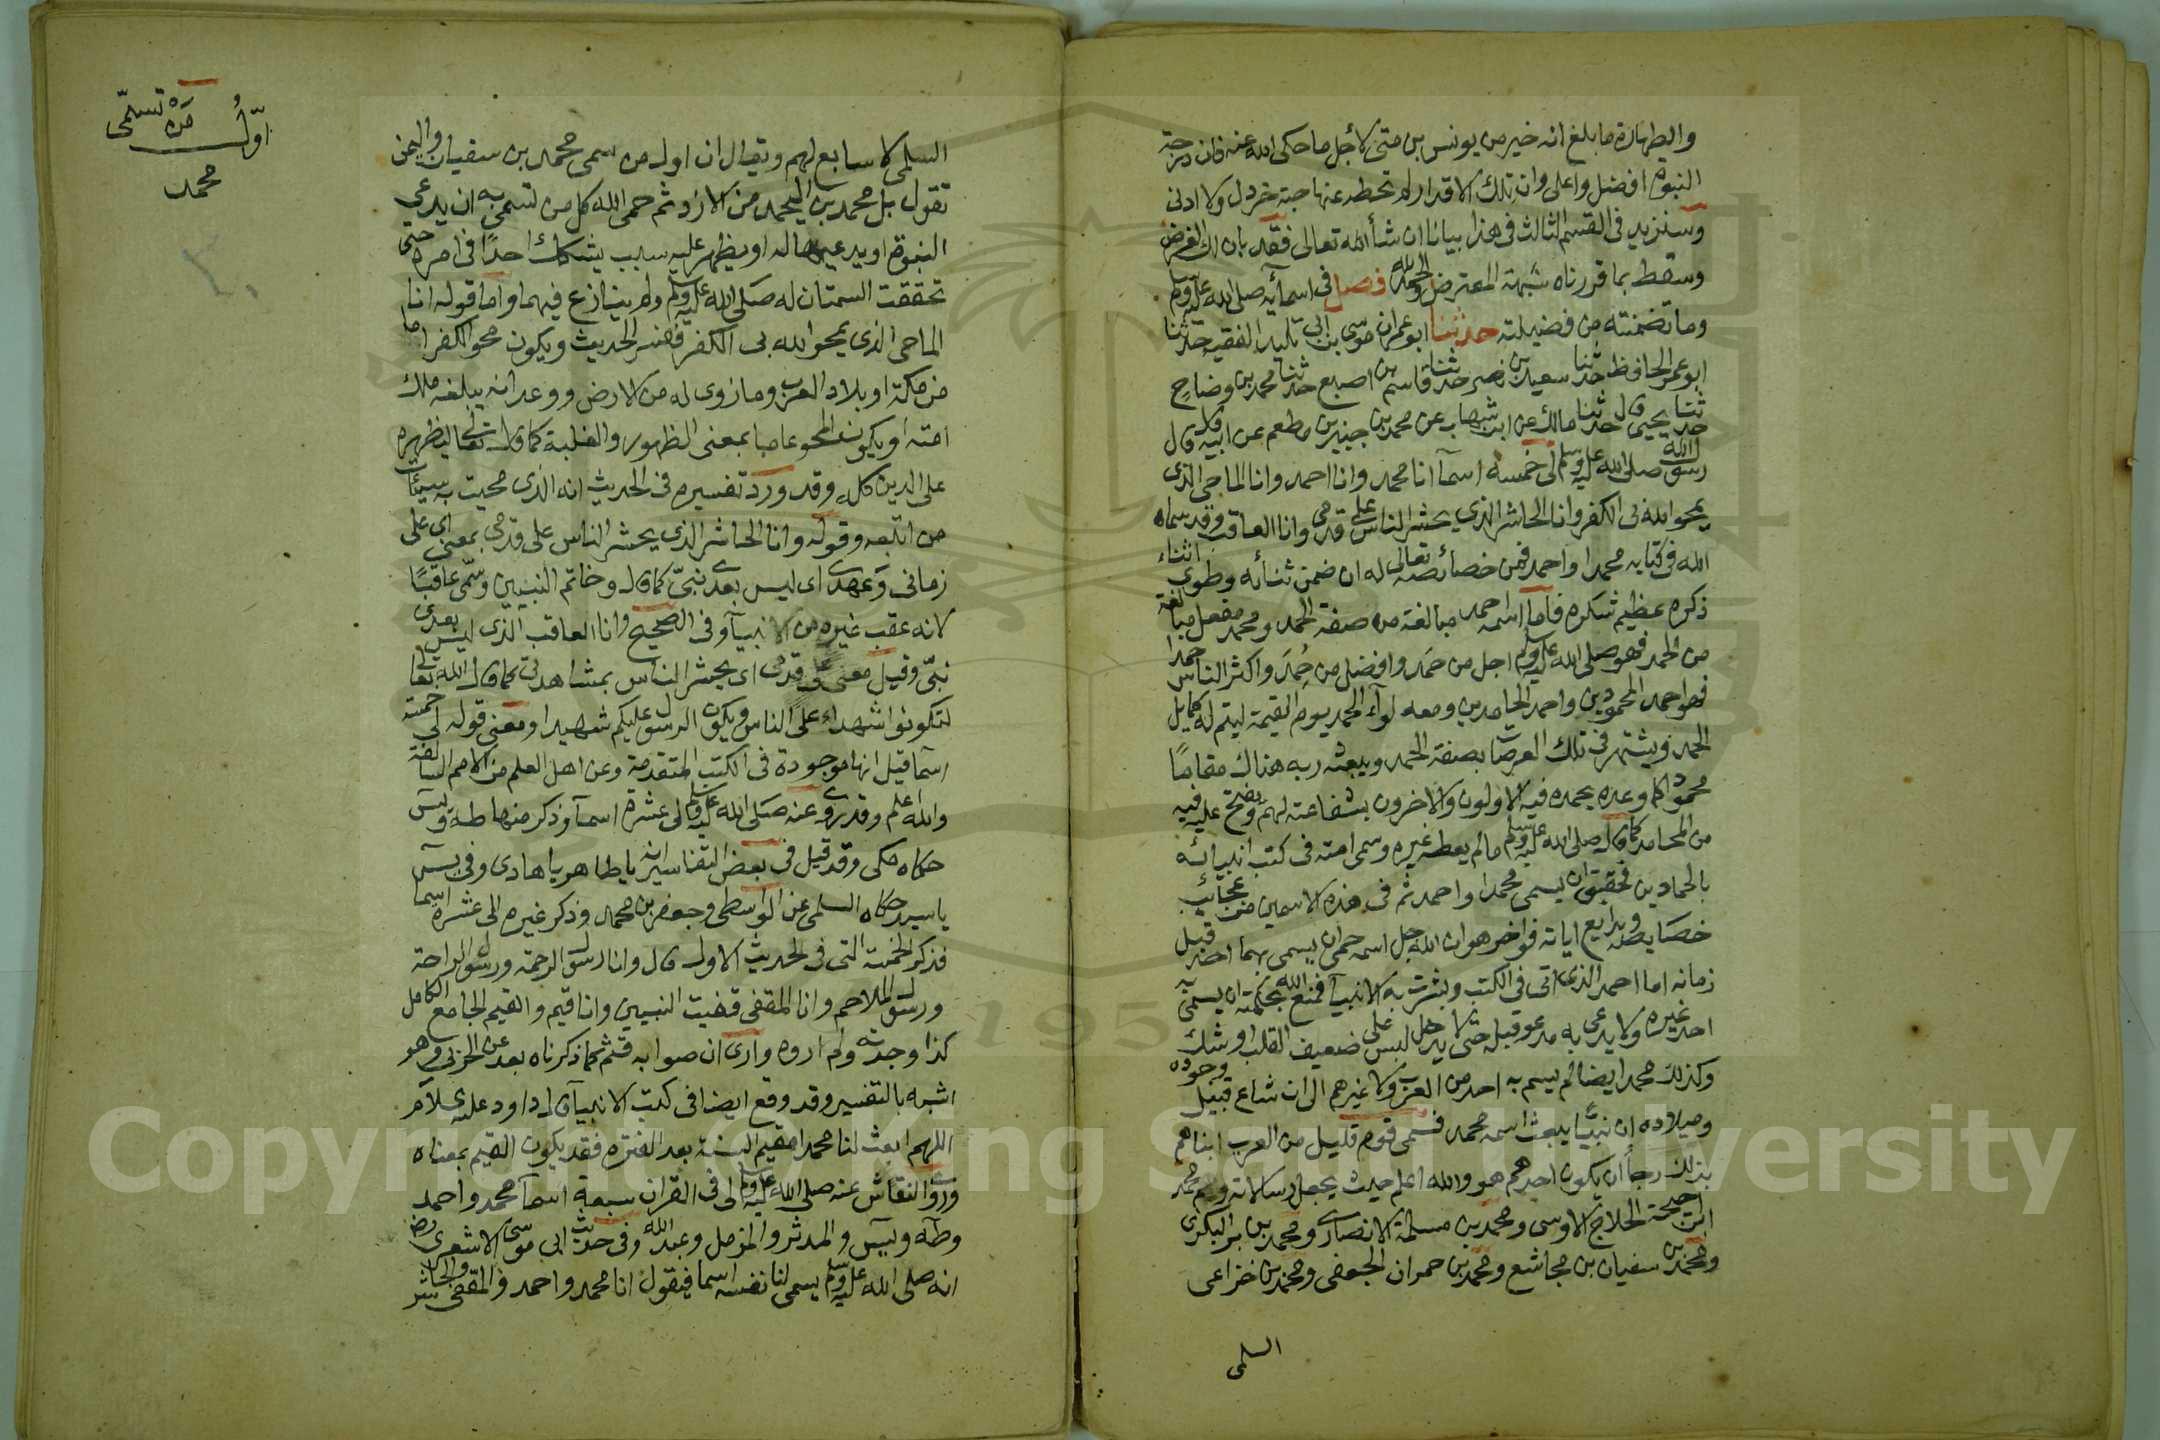 والطهارة ما بلغ انه خير من يونس بن متى لاجل ما حكى الله عنه فان درجة
النبوة افضل واعلى وان تلك الاقدار لم تحطه عنها حبة خردل ولا ادنى
وسنزيد فى القسم الثالث فى هذا بيانا ان شأ الله تعالى فقد بان لك الغرض
وسقط بما قررناه شبهة المعترض والحمد لله فصل فى اسمآئه صلى الله عليه وسلم
وما تضمنته من فضيلته حدثنا ابو عمران موسى بن ابى تليد الفقيه حدثنا
ابو عمر الحافظ حدثنا سعيد بن نصر حدثنا قاسم بن اصبغ حدثنا محمد بن وضاح
حدثنا يحيى قال حدثنا مالك عن ابن شهاب عن محمد بن جبير بن مطعم عن ابيه قال قال
رسول الله صلى الله عليه وسلم لى خمسة اسمآ انا محمد وانا احمد وانا الماحى الذى
يمحو الله بى الكفر وانا الحاشر الذى يحشر الناس على قدمى وانا العاقب وقد سماه
الله فى كتابه محمدا واحمد فمن خصائصه تعالى له ان ضمن ثنائه وطوى اثناء
ذكره عظيم شكره فاما اسمه احمد مبالغة من صفة الحمد ومحمد مفعل مبالغة
من الحمد فهو صلى الله عليه وسلم اجل من حمَد وافضل من حُمِدَ واكثر الناس حمدا
فهو احمد المحمودين واحمد الحامدين ومعه لوآء الحمد يوم القيمة ليتم له كمال
الحمد ويشتهر فى تلك العرصات بصفة الحمد ويبعثه ربه هناك مقاما
محمودا كما وعده يحمده فيه الاولون والاخرون بشفاعته لهم ويفتح عليه فيه
من المحامد كما قال صلى الله عليه وسلم ما لم يعطه غيره وسمى امته فى كتب انبيائه
بالحمادين فحقيق ان يسمى محمدا واحمد ثم فى هذه الاسمين من عجائب
خصايصه وبدايع اياته فن اخر هو ان الله جل اسمه حمى ان يسمى بهما احد قبل
زمانه اما احمد الذى اتى فى الكتب وبشرت به الانبيآ فمنع الله بحكمته ان يسمى به
احد غيره ولا يدعى به مدعو قبله حتى لا يدخل لبس على ضعيف القلب او شك
وكذلك محمد ايضا لم يسم به احد من العرب ولا غيرهم الى ان شاع قبيل وجوده
وميلاده ان نبيًّا يبعث اسمه محمد فسمى قوم قليل من العرب ابناهم
بذلك رجآ ان يكون احدهم هو والله اعلم حيث يجعل رسالاته وهم محمد
ابن احيحة الجلاح الاوسى ومحمد بن مسلمة الانصارى ومحمد بن برا البكرى
ومحمد بن سفيان بن مجاشع ومحمد بن حمران الجعفى ومحمد بن خزاعى
السلمى
اوّلُ مَنْ تسمّى
محمد
السلمى لا سابع لهم ويقال ان اول من سمى محمد بن سفيان واليمن
تقول بل محمد بن اليحمد من الازد ثم حمى الله كل من تسمى به ان يدعى
النبوة او يدعيها له او يظهر عليه سبب يشكك احدًا فى امره حتى
تحققت السمتان له صَلى الله عليه وسلم ولم ينازع فيهما واما قوله انا
الماحى الذى يمحو الله بى الكفر ففسر الحديث ويكون محو الكفر اما
من مكة او بلاد العرب وما زوى له من الارض ووعد انه يبلغه ملك
امته او يكون المحو عاما بمعنى الظهور والغلبة كما قال تعالى ليظهره
على الدين كله وقد ورد تفسيره فى الحديث انه الذى محيت به سيئات
من اتبعه وقوله وانا الحاشر الذى يحشر الناس على قدمى بمعنى اى على
زمانى وعهدى اى ليس بعدى نبىّ كما قال وخاتم النبيين وسمّى عاقبًا
لانه عقب غيره من الانبيآ وفى الصحيح وانا العاقب الذى ليس بعدى
نبىّ وقيل معنى على قدمى اى يحشر الناس بمشاهدتى كما قال الله تعالى
لتكونوا شهداء على الناس ويكون الرسول عليكم شهيدا ومعنى قوله لى خمسة
اسمآ قيل انها موجودة فى الكتب المتقدمة وعن اهل العلم من الامم السالفة
والله اعلم وقد روى عنه صَلى الله عليه وسلم لى عشرة اسمآ وذكر منها طه ويس
حكاه مكى وقد قيل فى بعض التفاسير انه يا طاهر يا هادى وفى يس
يا سيد حكاه السلمى عن الواسطى وجعفر بن محمد وذكر غيره الى عشرة اسما
فذكر الخمسة التى فى الحديث الاول قال وانا رسول الرحمة ورسول الراحة
ورسول الملاحم وانا المقفى قفيت النبيين وانا قيم والقيم الجامع الكامل
كذا وجدته ولم اروه وارى ان صوابه قثم كما ذكرناه بعد عن الحربى وهو
اشبه بالتفسير وقد وقع ايضا فى كتب الانبيآ قال داود عليه السلام
اللهم ابعث لنا محمدا مقيم السنة بعد الفترة فقد يكون القيم بمعناه
وروى النقاش عنه صلى الله عليه وسلم لى فى القران سبعة اسمآ محمد واحمد
وطه ويس والمدثر والمزمل وعبد الله وفى حديث ابى موسى الاشعرى رض
انه صلى الله عليه وسلم يسمى لنا نفسه اسما فيقول انا محمد واحمد والمقفى والحاشر